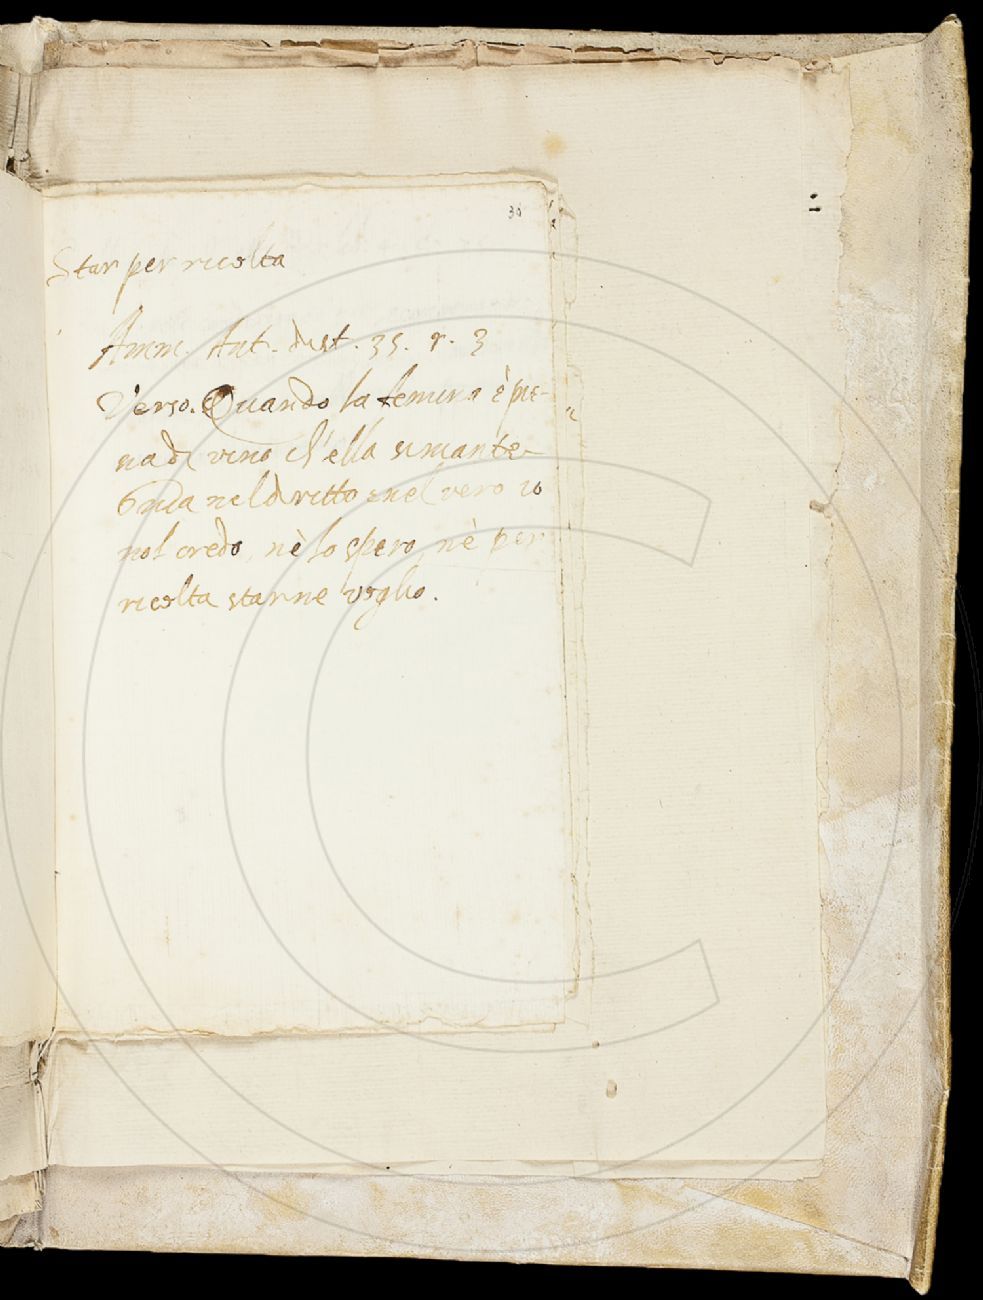 30
Star per ricolta
Amm. Ant. dist. 35. r. 3
Verso. Quando la femina è pie-
na di vino ch'ella si mante-
nel diritto e nel vero io
nol credo, nè lo spero, nè per
ricolta starne voglio.